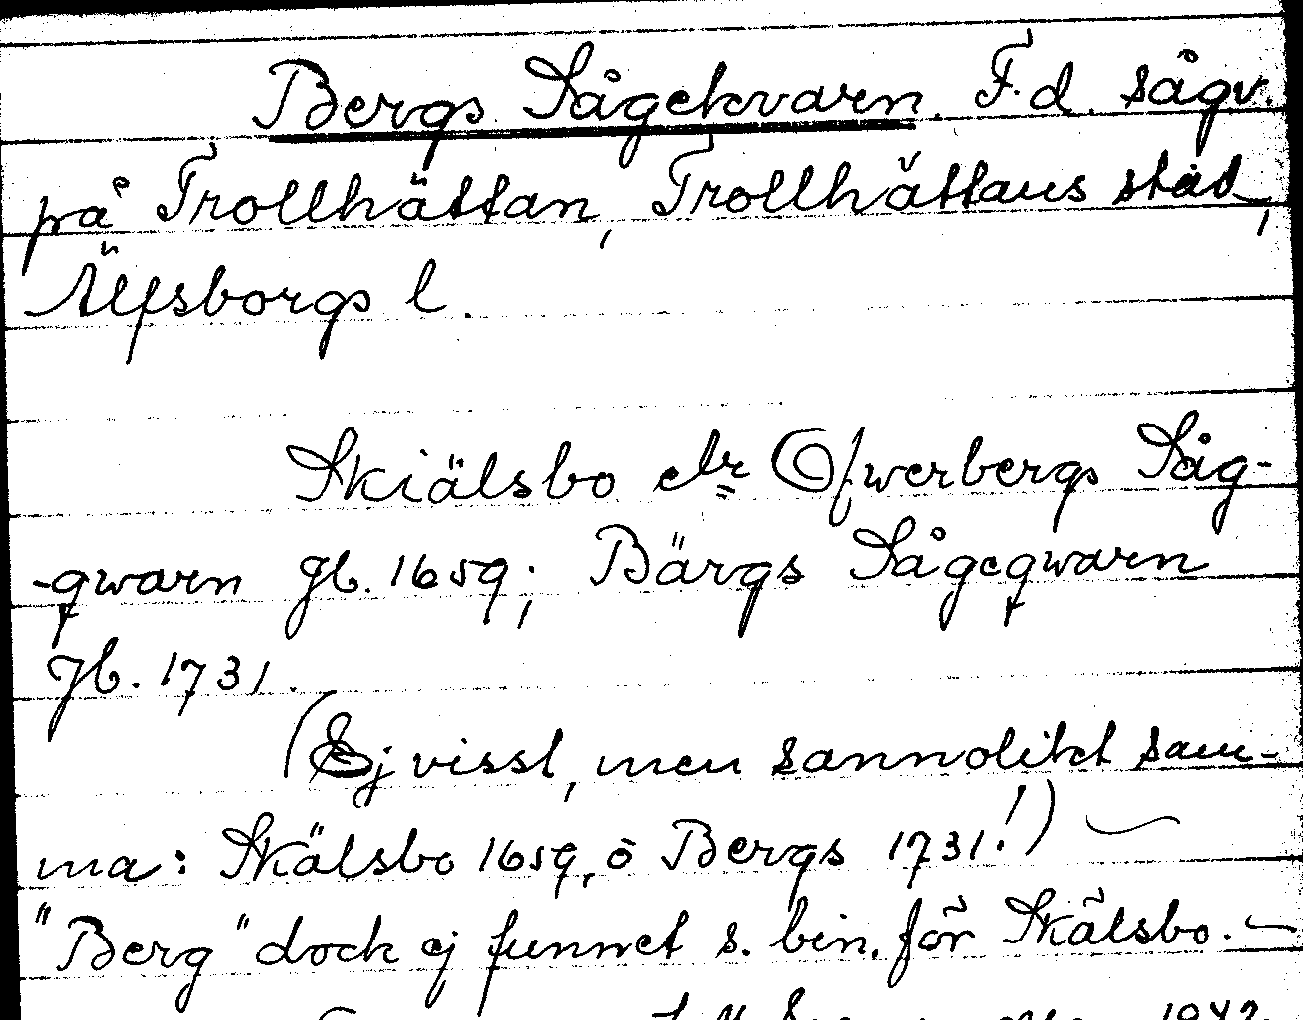 Bergs Sågekvarn. F.d. sågv.
på Trollhättan, Trollhättans stad,
Älfsborgs l.
Skiälsbo elr Ofwerbergs Såg-
-qwarn Jb. 1659; Bärgs Sågeqwarn
Jb. 1731.
(Ej visst, men sannolikt sam-
ma: Skälsbo 1659, o Bergs 1731!)
"Berg" dock ej funnet s. bin. för Skälsbo. —
1942.